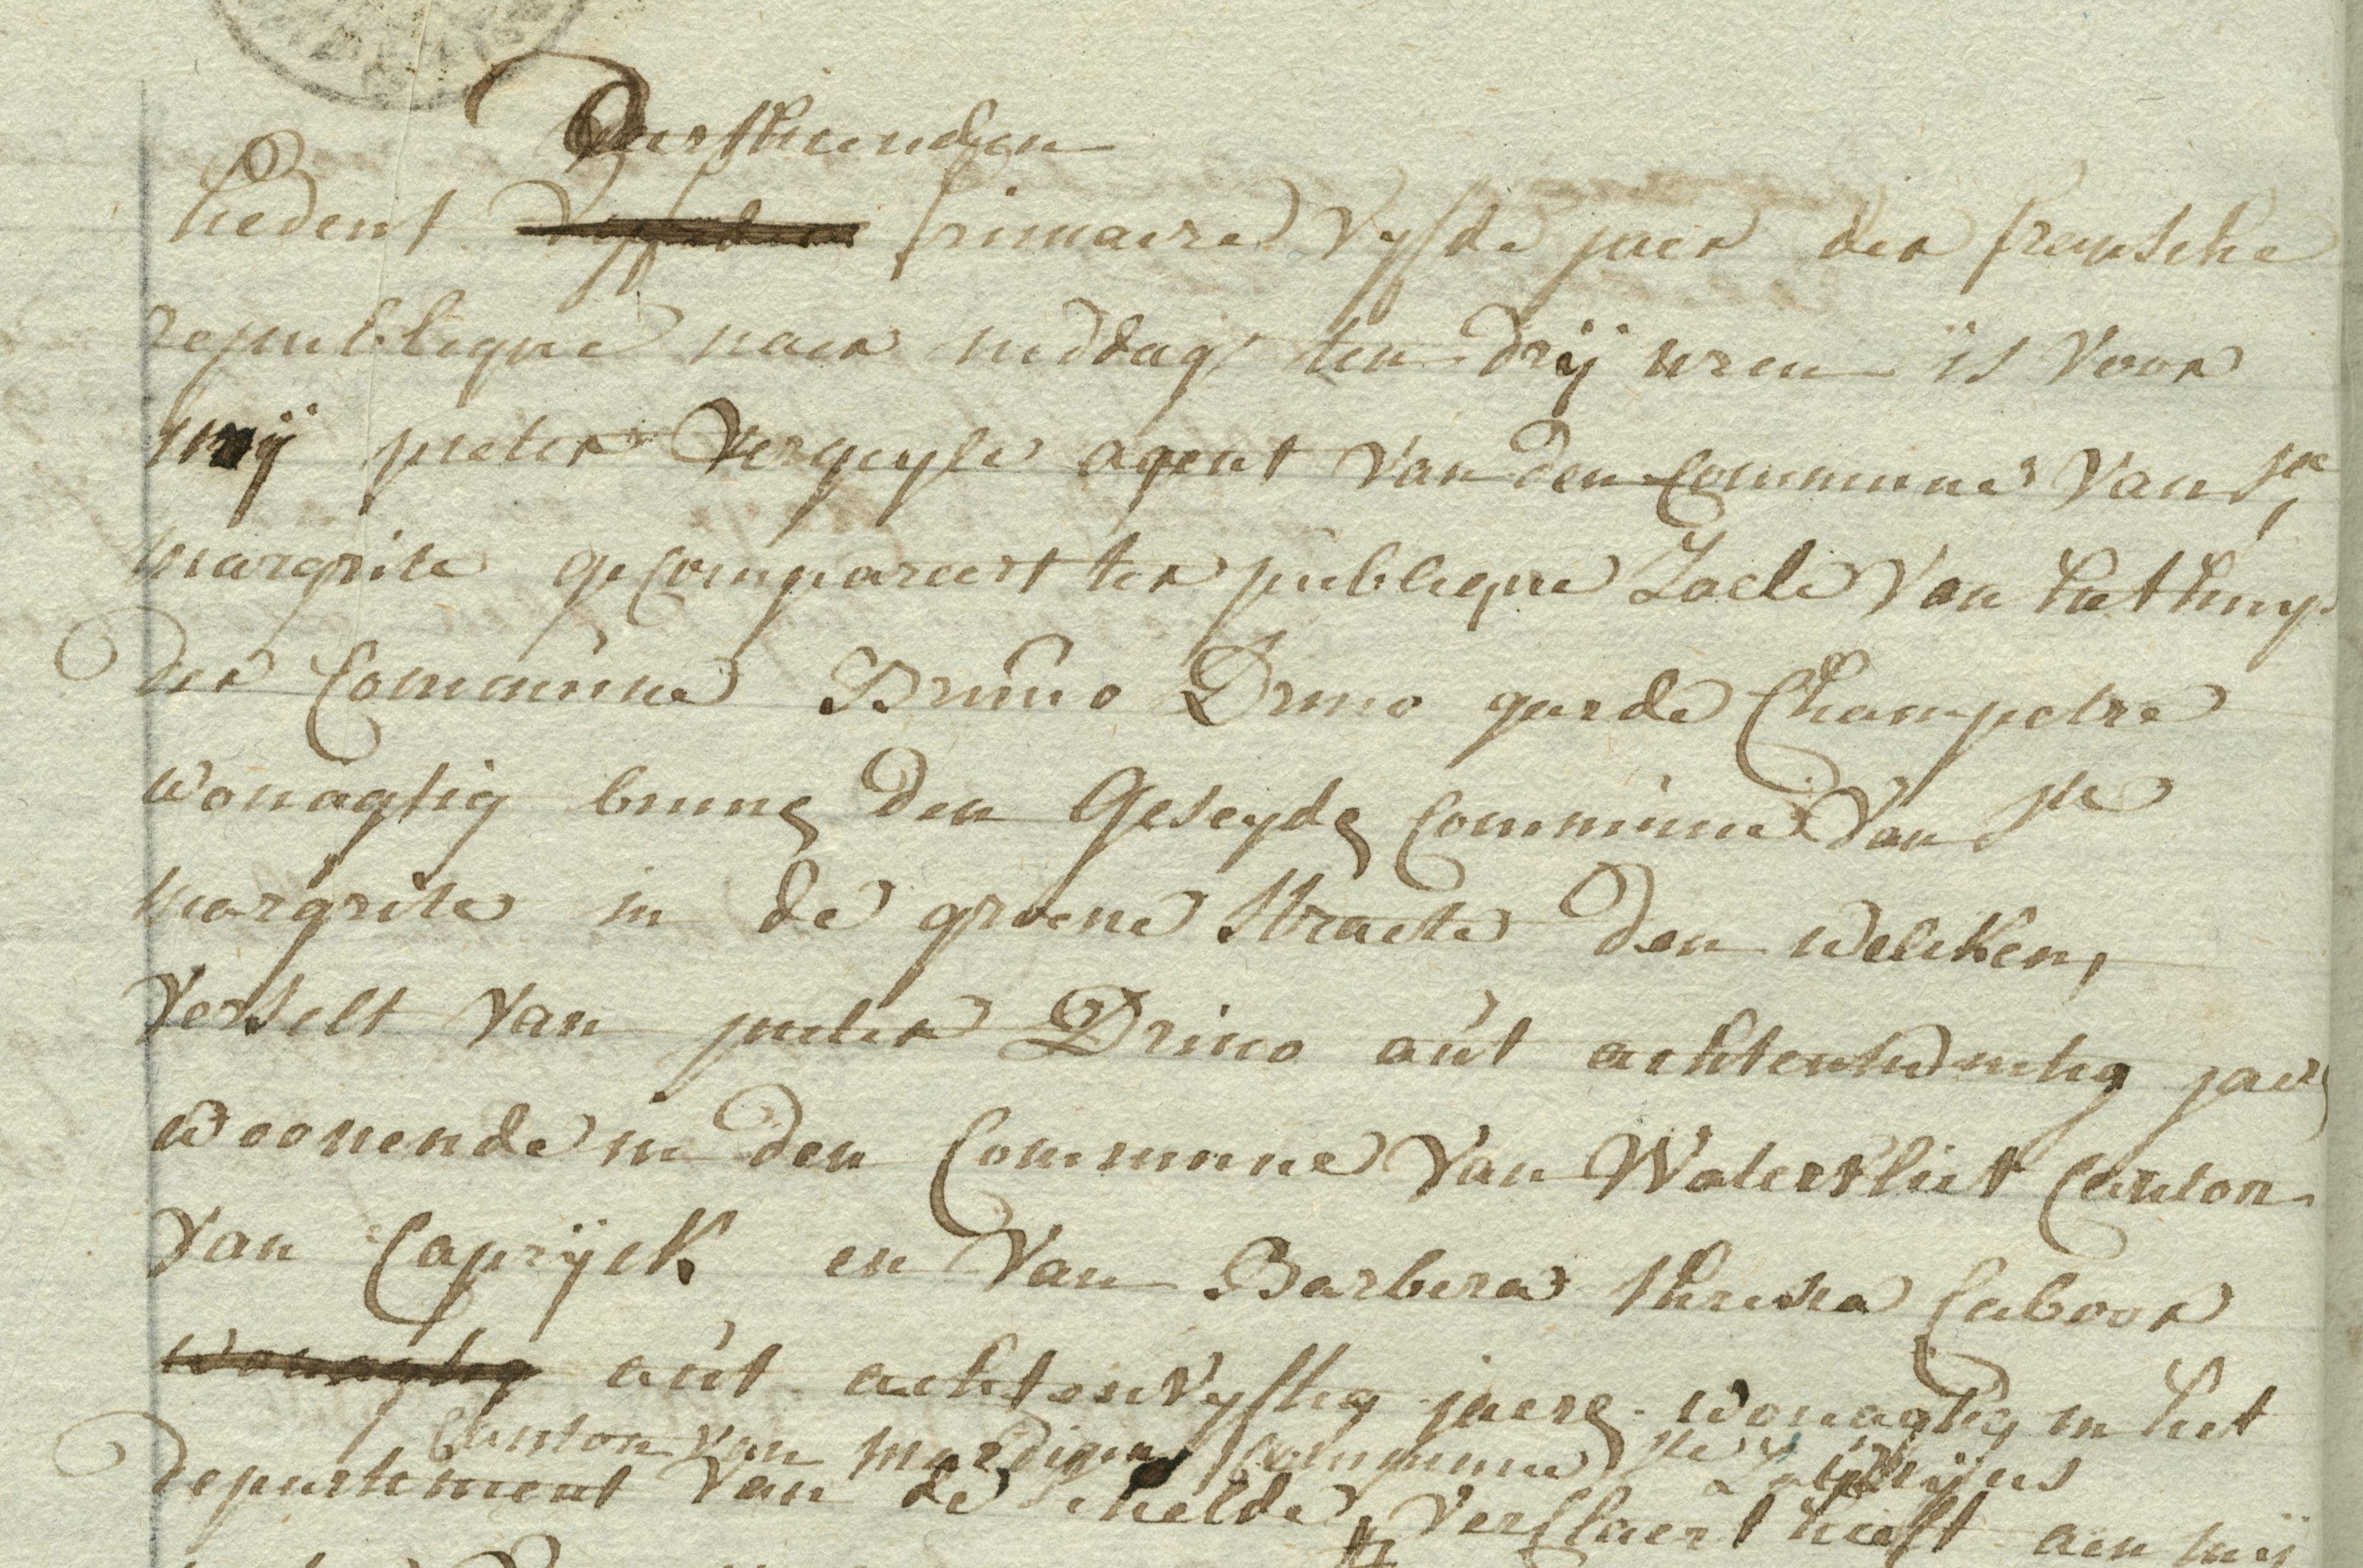 Derthienden
hedent frimaire vyfde jaer der fransche
republique naer middag ten drij uren is voor
mij pieter Vergeyle agent van den Commune van Ste
margrite gecompareert ter publique Zaele van het huys
der Commune Bruno Druio garde Champetre
wonagtig binne den Geseyde Commune van Ste
margrite in de groene Straete den welken,
verselt van pieter Drino aut achtentwintig jaer
woonende in den Commune van Watervliet Canton
van Capryck en van Barbera theresia Caboor
wonagtig aut achtenvyftig jaere wonagtig in het
Canton van maerdigem Commune Ste Laureijns
departement van de schelde verclaert heeft aen mij